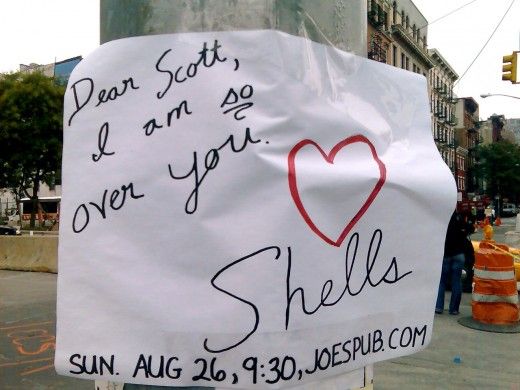 Dear Scott,
I am so
over you.
Shells
SUN. AUG 26, 9:30, JOESPUB.COM